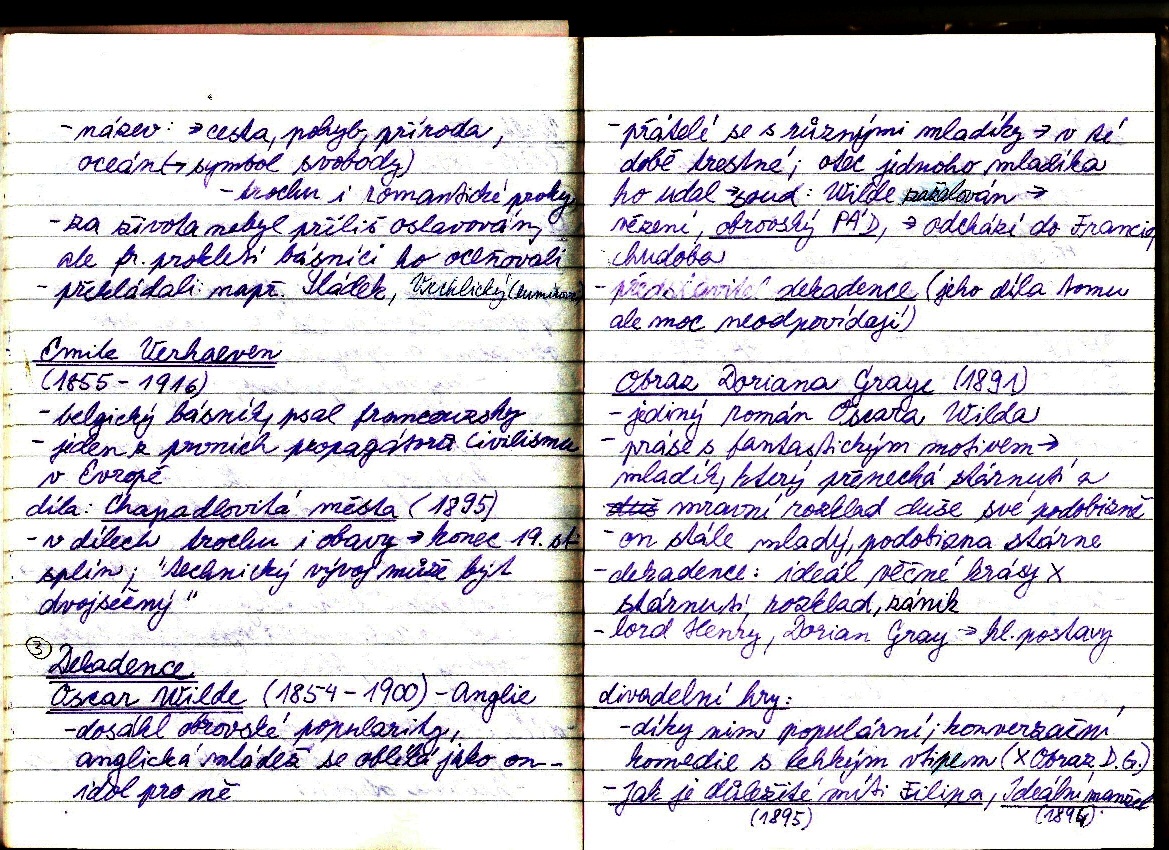 - název: → cesta, pohyb, příroda,
oceán (→ symbol svobody)
- trochu i romantické prvky
- za života nebyl příliš oslavován,
ale fr. prokletí básníci ho oceňovali
- překládali např. Sládek, Vrchlický
Emile Verhaeven
(1855 - 1916)
- belgický básník, psal francouzsky
- jeden z prvních propagátorů civilismu
v Evropě
díla: Chapadlovitá města (1895)
- v dílech trochu i obavy → konec 19. st
splín; "technický vývoj může být
dvojsečný"
③
Dekadence
Oscar Wilde (1854 - 1900) - Anglie
- dosáhl obrovské popularity,
anglická mládež se oblékla jako on -
idol pro ně
- přátelé se s různými mladíky → v té
době trestné; otec jednoho mladíka
ho udal → soud: Wilde →
vězení, obrovský PÁD, → odchází do Francie,
chudoba
- představitel dekadence (jeho díla tomu
ale moc neodpovídají)
Obraz Doriana Graye (1891)
- jediný román Oscara Wilda
- próse s fantastickým motivem →
mladík, který přenechá stárnutí a
mravní rozklad duše své podobizně
- on stále mladý, podobizna stárne
- dekadence: ideál věčné krásy X
stárnutí, rozklad, zánik
- lord Henry, Dorian Gray → hl. postavy
divadelní hry:
- díky nim populární; konverzační
komedie s lehkým vtipem (X Obraz D. G.)
- Jak je důležité míti Filipa, Ideální manžel
(1895) (1894)